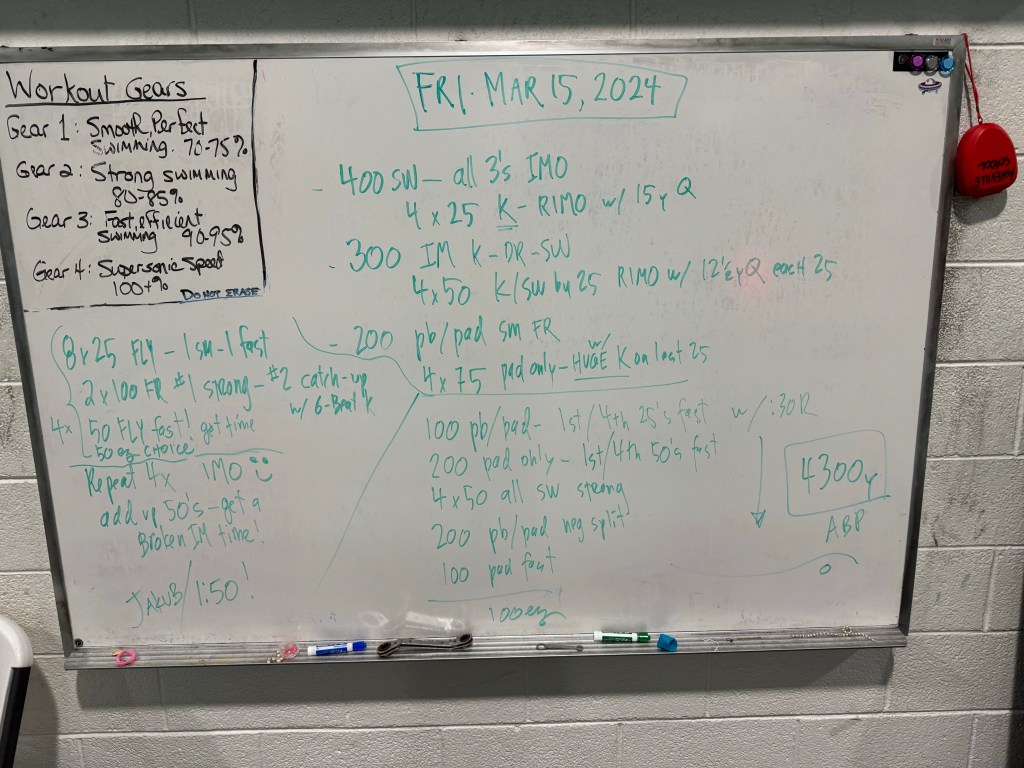 Workout Gears
Gear 1: Smooth, Perfect
Swimming. 70-75%
Gear 2: Strong swimming
80-85%
Gear 3: Fast, efficient
swimming 90-95%
Gear 4: Supersonic Speed
100+%
DO NOT ERASE
FRI. MAR 15, 2024
- 400 SW - all 3's IMO
4 x 25 K - RIMO w/ 15 y Q
- 300 IM K-DR-SW
4x50 K/SW by 25 RIMO w/ 12 y Q each 25
- 200 pb/pad sm FR
4 x 75 pad only - w/ HUGE K on last 25
8 x 25 FLY - 1 sm - 1 fast
2 x 100 FR #1 strong - #2 catch-up
w/ 6-Beat K
4x 50 FLY fast! get time
50 ez CHOICE
Repeat 4x IMO
add up 50's - get a
Broken IM time!
JAKUB / 1:50!
100 pb/pad - 1st/4th 25's fast w/ :30R
200 pad only - 1st/4th 50's fast
4 x 50 all sw strong
200 pb/pad neg split
100 pad fast
100 ez
4300y
ABP